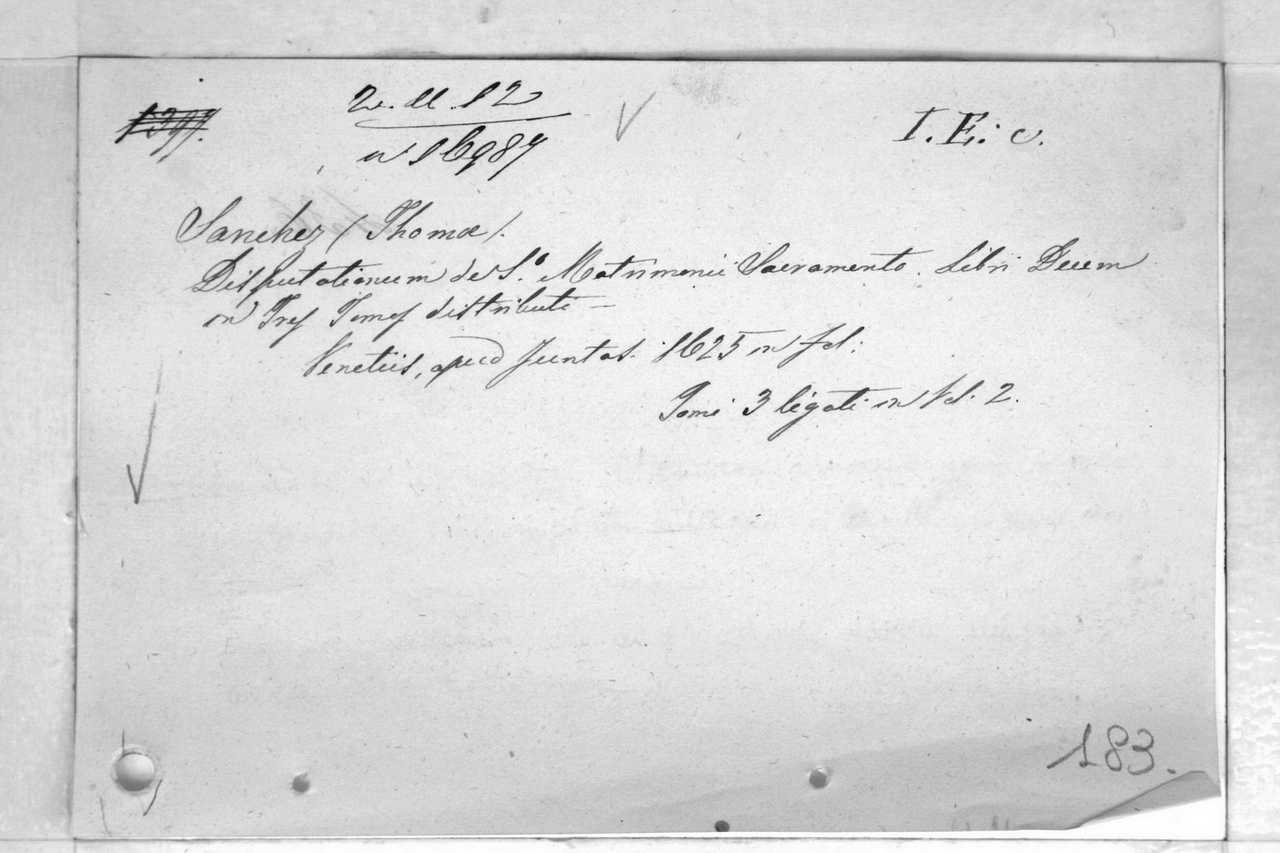 1397.
2. M. 12
n 16987
I. E. c.
Sanchez (Thomæ).
Disputationum de S.º Matrimonii Sacramento. Libri Decem
in Tres Tomos distributi —
Venetiis, apud Juntas. 1625 in fol:
Tomi 3 legati in Vol. 2.
183.